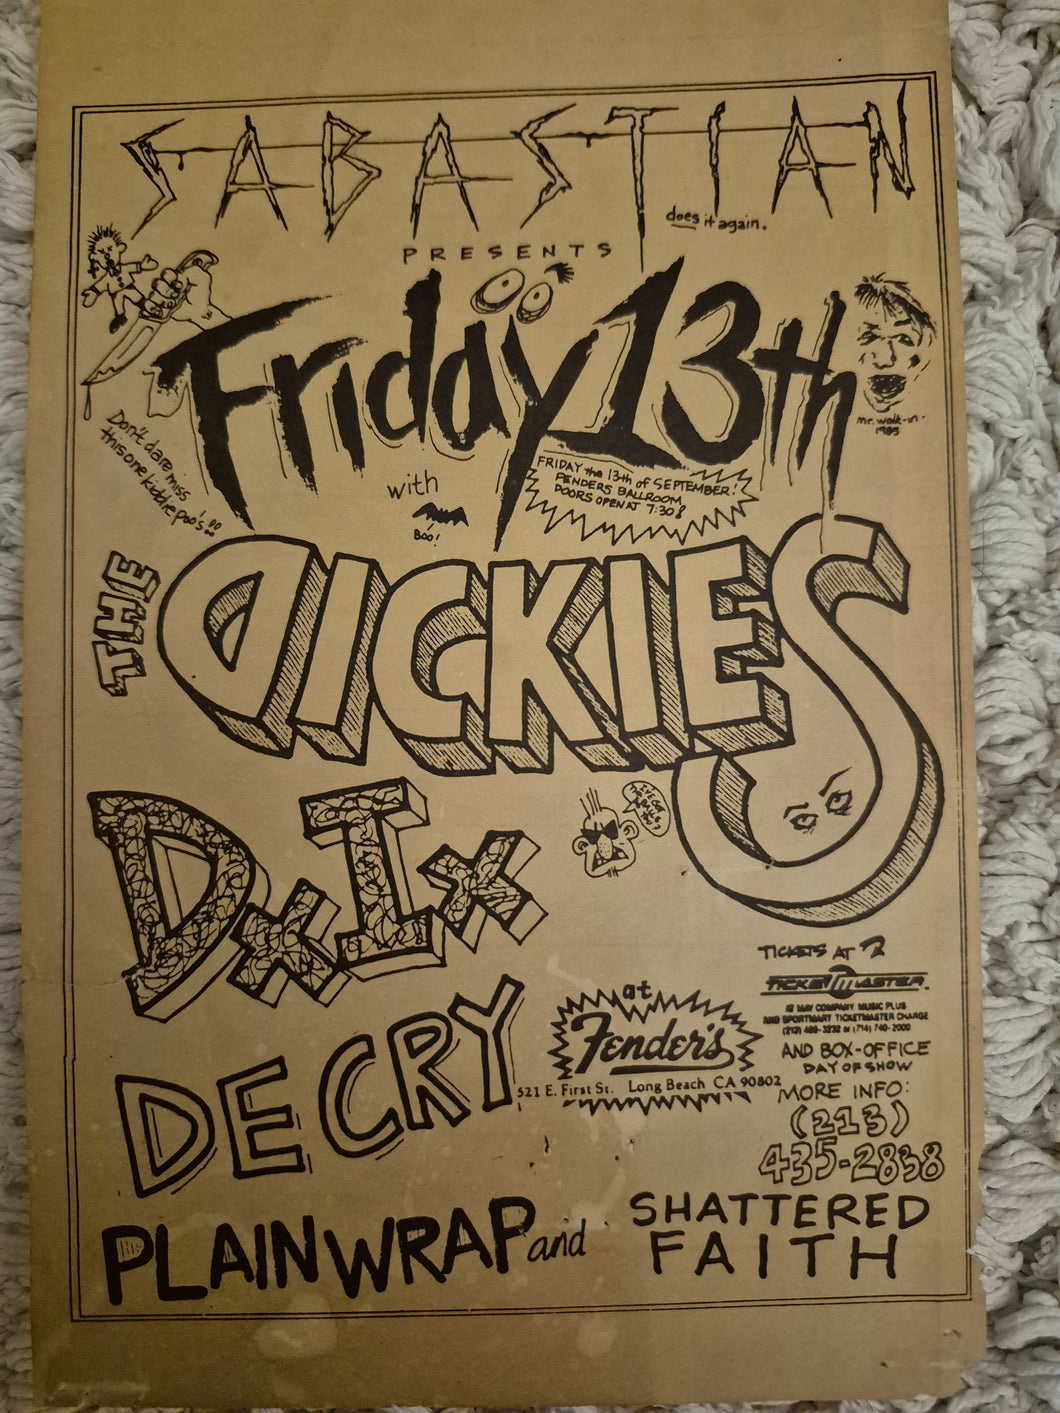 SABASTIAN
does it again.
PRESENTS
Friday 13th
mr. walk-in-
1985
Don't dare miss
this one kiddie poo's!!
with
BOO!
FRIDAY the 13th of SEPTEMBER!
FENDERS BALLROOM
DOORS OPEN AT 7:30!
THE
DICKIES
DxIx
TICKETS AT
TICKETMASTER.
AT MAY COMPANY MUSIC PLUS
AND SPORTMART TICKETMASTER CHARGE
(213) 480-3232 or (714) 740-2000
AND BOX-OFFICE
DAY OF SHOW
at
Fender's
521 E. First St. Long Beach CA 90802
MORE INFO:
(213)
435-2838
DECRY
PLAIN WRAP and
SHATTERED
FAITH